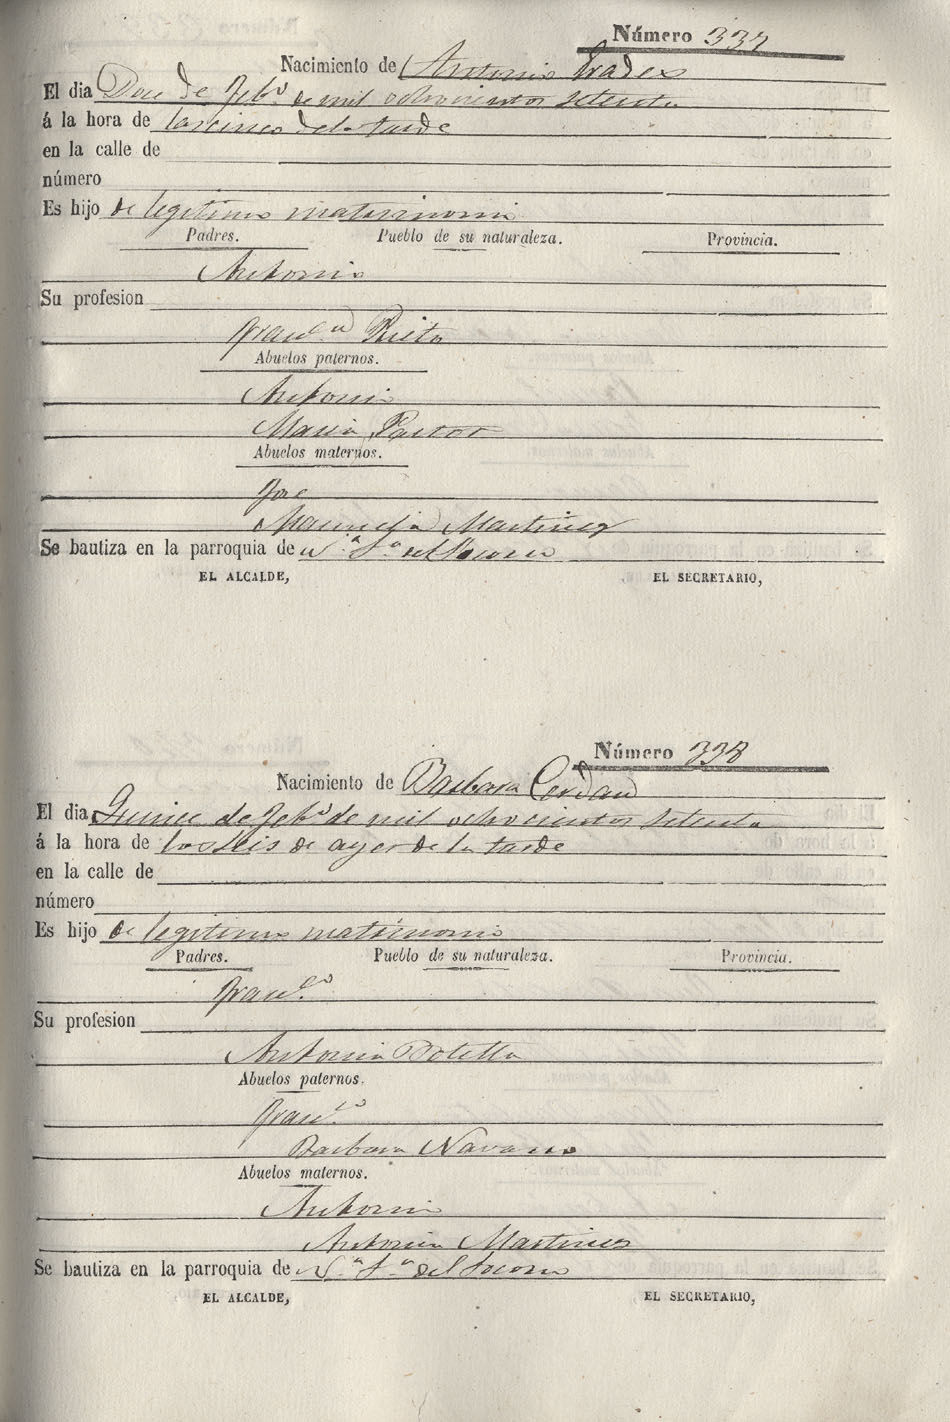 Número 337
Nacimiento de Antonio Prades
El dia Doce de Feb.º de mil ochocientos setenta
á la hora de las cinco de la tarde
en la calle de
número
Es hijo de legitimo matrimonio
Padres. Pueblo de su naturaleza. Provincia.
Antonio
Su profesion
Fran.ca Prieto
Abuelos paternos.
Antonio
Maria Pastor
Abuelos maternos.
Jose
Manuela Martinez
Se bautiza en la parroquia de N.ª S.ª del Socorro
EL ALCALDE, EL SECRETARIO,
Número 338
Nacimiento de Barbara Cerdan
El dia Quince de Feb.º de mil ochocientos setenta
á la hora de las seis de ayer de la tarde
en la calle de
número
Es hijo de legitimo matrimonio
Padres. Pueblo de su naturaleza. Provincia.
Fran.co
Su profesion
Antonia Botella
Abuelos paternos.
Fran.co
Barbara Navarro
Abuelos maternos.
Antonio
Antonia Martinez
Se bautiza en la parroquia de N.ª S.ª del Socorro
EL ALCALDE, EL SECRETARIO,